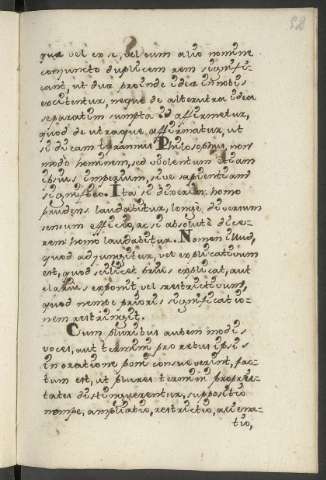 52
quæ vel ex se, vel cum alio nomine
conjuncto duplicem rem signifi-
cant, ut duæ proinde ideæ in nobis
excitentur, neque de alterutra idea
separatim sumpta id affirmetur,
quod de utraque affirmatur, ut
si dicam tyrannus Philosophus, non
modo hominem, sed violentum etiam
ejus imperium, sive sapientiam
significo. Ita si dixerim: homo
prudens laudabitur, longe diversum
sensum efficio, ac si absolute dice-
rem: homo laudabitur. Nomen illud,
quod adjungitur, vel explicativum
est, quod scilicet prius explicat, aut
clarius exponit, vel restrictivum,
quod nempe prioris significatio-
nem restringit.
Cum pluribus autem modis
voces, aut termini pro rebus ipsis
in oratione poni consueverint, fac-
tum est, ut plures terminorum proprie-
tates distinguerentur, suppositio
nempe, ampliatio, restrictio, aliena-
tio,